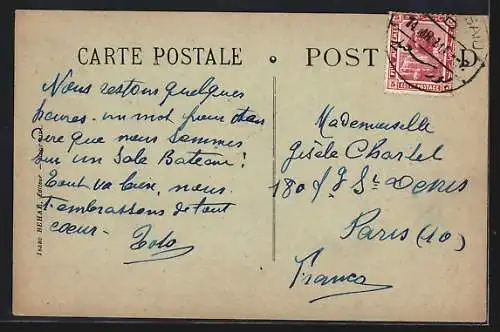 CARTE POSTALE
POST
D
Nous restons quelques
heures. un mot pour
Dire que nous sommes
sur un Sale Bateau!
Tout va bien, nous
t'embrassons de tout
cœur - Toto
Mademoiselle
Gisèle Chartel
180 f g St Denis
Paris (10)
France
ISAAC BEHAR, Editeur